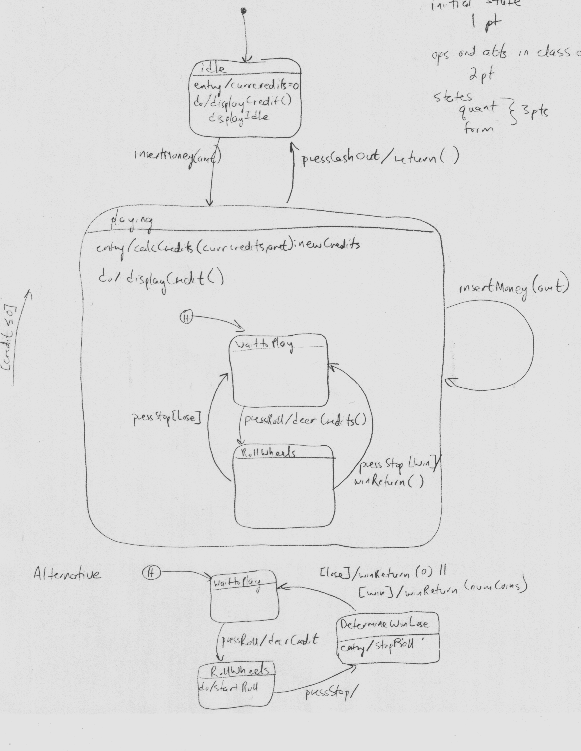 initial state
1 pt
ops and atts in class
2pt
states
quant
form
3pts
idle
entry/currcredits=0
do/displayCredit()
displayIdle
insertMoney(amt)
pressCashOut/return()
playing
entry/calcCredits(currcredits,amt):newCredits
do/displayCredit()
insertMoney(amt)
[credit≤0]
H
waittoPlay
pressStop[lose]
pressRoll/decrCredits()
RollWheels
pressStop[win]/
winReturn()
Alternative
H
[lose]/winReturn(0) ||
[win]/winReturn(numCoins)
waittoPlay
DetermineWinLose
entry/stopRoll
pressRoll/decrCredit
RollWheels
do/startRoll
pressStop/